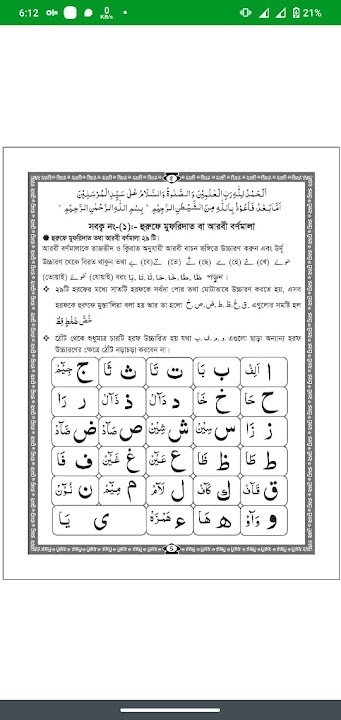 6:12
0 KB/s
21%
اَلْحَمْدُ لِلّٰهِ رَبِّ الْعٰلَمِيْنَ وَالصَّلٰوةُ وَالسَّلَامُ عَلٰى سَيِّدِ الْمُرْسَلِيْنَ
اَمَّا بَعْدُ فَاَعُوْذُ بِاللّٰهِ مِنَ الشَّيْطٰنِ الرَّجِيْمِ ؕ بِسْمِ اللّٰهِ الرَّحْمٰنِ الرَّحِيْمِ ؕ
সবক্ব নং-(১)ঃ- হুরুফে মুফরিদাত বা আরবী বর্ণমালা
হুরুফে মুফরিদাত তথা আরবী বর্ণমালা ২৯ টি।
আরবী বর্ণমালাকে তাজভীদ ও ক্বিরাত অনুযায়ী আরবী বাচন ভঙ্গিতে উচ্চারণ করুন এবং উর্দূ
উচ্চারণ থেকে বিরত থাকুন তথা بے (বে) تے (তে) ثے (ছে) حے (হে) خے (খে) طوئے
(তোয়াই) ظوئے (যোয়াই) বরং بَا, تَا, ثَا, حَا, خَا, طَا, ظَا পড়ুন।
❖ ২৯টি হরফের মধ্যে সাতটি হরফকে সর্বদা পোর তথা মোটাভাবে উচ্চারণ করতে হয়, এসব
হরফকে হুরুফে মুস্তা'লিয়া বলা হয় আর তা হলো خ, ص, ض, ط, ظ, غ, ق এগুলোর সমষ্টি হল
خُصَّ ضَغْطٍ قِظْ
❖ ঠোঁট থেকে শুধুমাত্র চারটি হরফ উচ্চারিত হয় যথা ب, ف, م, و এগুলো ছাড়া অন্যান্য হরফ
উচ্চারণের ক্ষেত্রে ঠোঁট নড়াচড়া করবেন না।
ا اَلِفْ ب بَا ت تَا ث ثَا ج جِيْمْ
ح حَا خ خَا د دَالْ ذ ذَالْ ر رَا
ز زَا س سِيْنْ ش شِيْنْ ص صَادْ ض ضَادْ
ط طَا ظ ظَا ع عَيْنْ غ غَيْنْ ف فَا
ق قَافْ ك كَافْ ل لَامْ م مِيْمْ ن نُوْنْ
و وَاوْ ه هَا ء هَمْزَهْ ى يَا
5